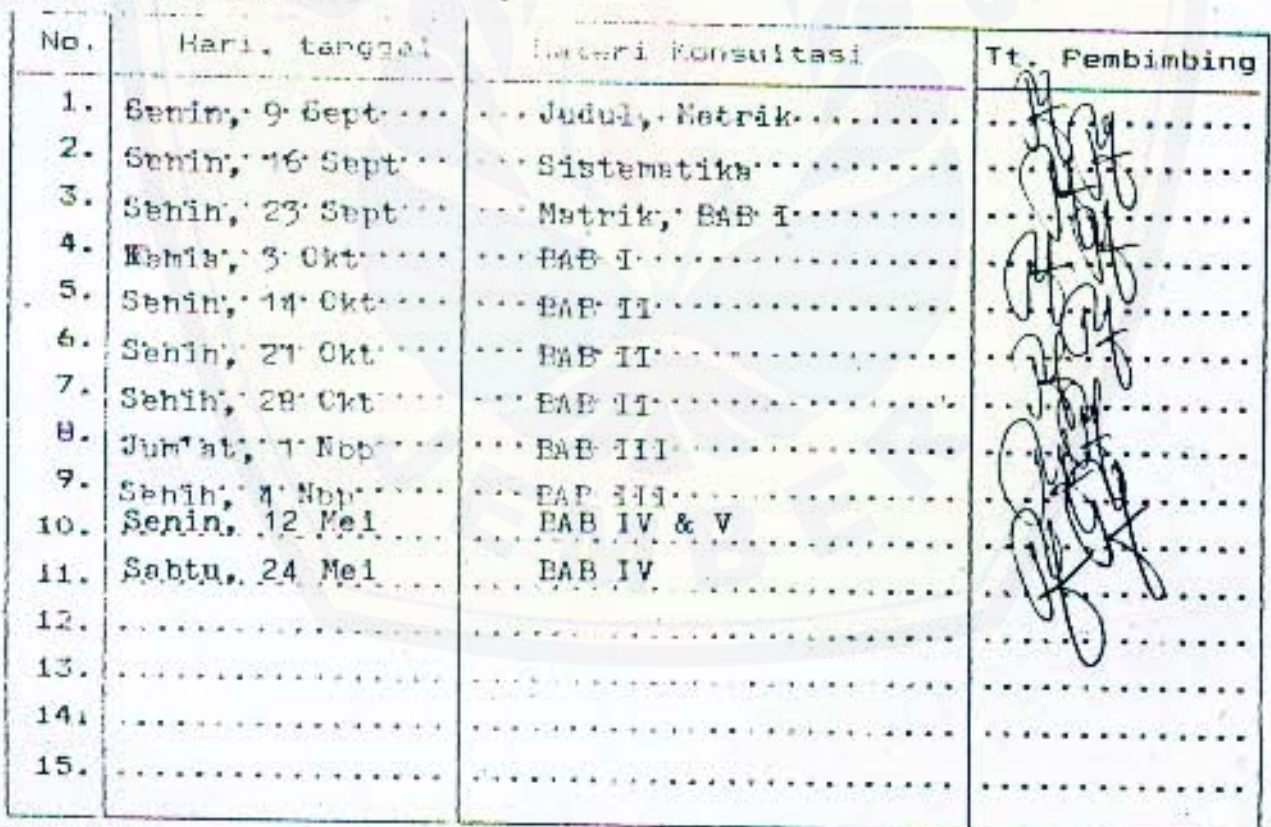 No. Hari, tanggal Materi Konsultasi Tt. Pembimbing
1. Senin, 9 Sept Judul, Matrik
2. Senin, 16 Sept Sistematika
3. Senin, 23 Sept Matrik, BAB I
4. Kamis, 3 Okt BAB I
5. Senin, 14 Okt BAB II
6. Senin, 21 Okt BAB II
7. Senin, 28 Okt BAB II
8. Jum'at, 1 Nop BAB III
9. Senin, 4 Nop BAB III
10. Senin, 12 Mei BAB IV & V
11. Sabtu, 24 Mei BAB IV
12.
13.
14.
15.
JEMBER